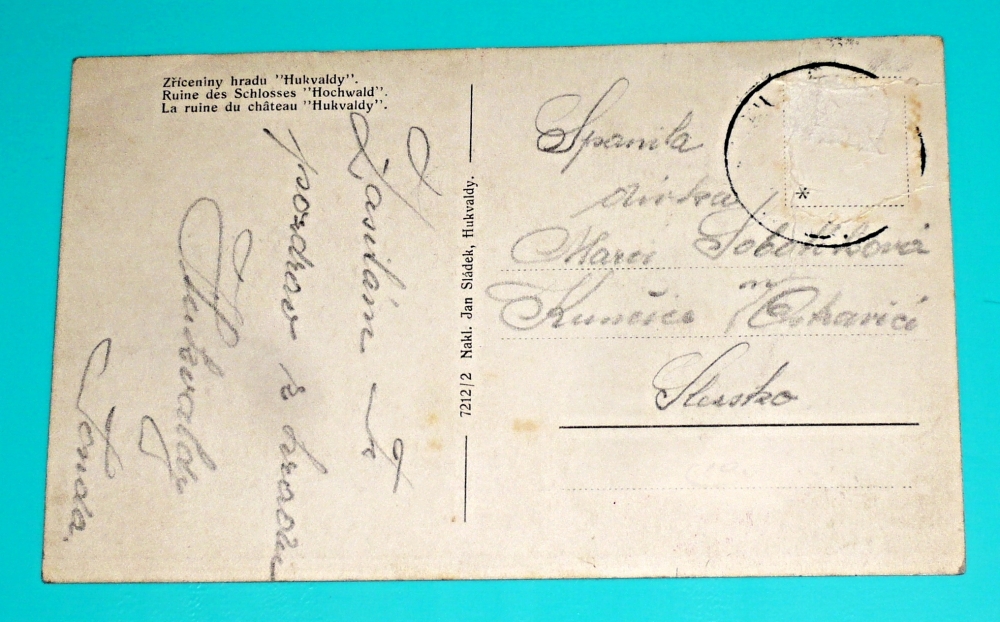 Zříceniny hradu "Hukvaldy".
Ruine des Schlosses "Hochwald".
La ruine du château "Hukvaldy".
Zasílám Ti
pozdrav z hradu
Hukvaldy
Tonda.
7212/2 Nakl. Jan Sládek, Hukvaldy.
Spanilá
dívka
Sobotíková
Kunčice n/Ostravicí
Slezsko